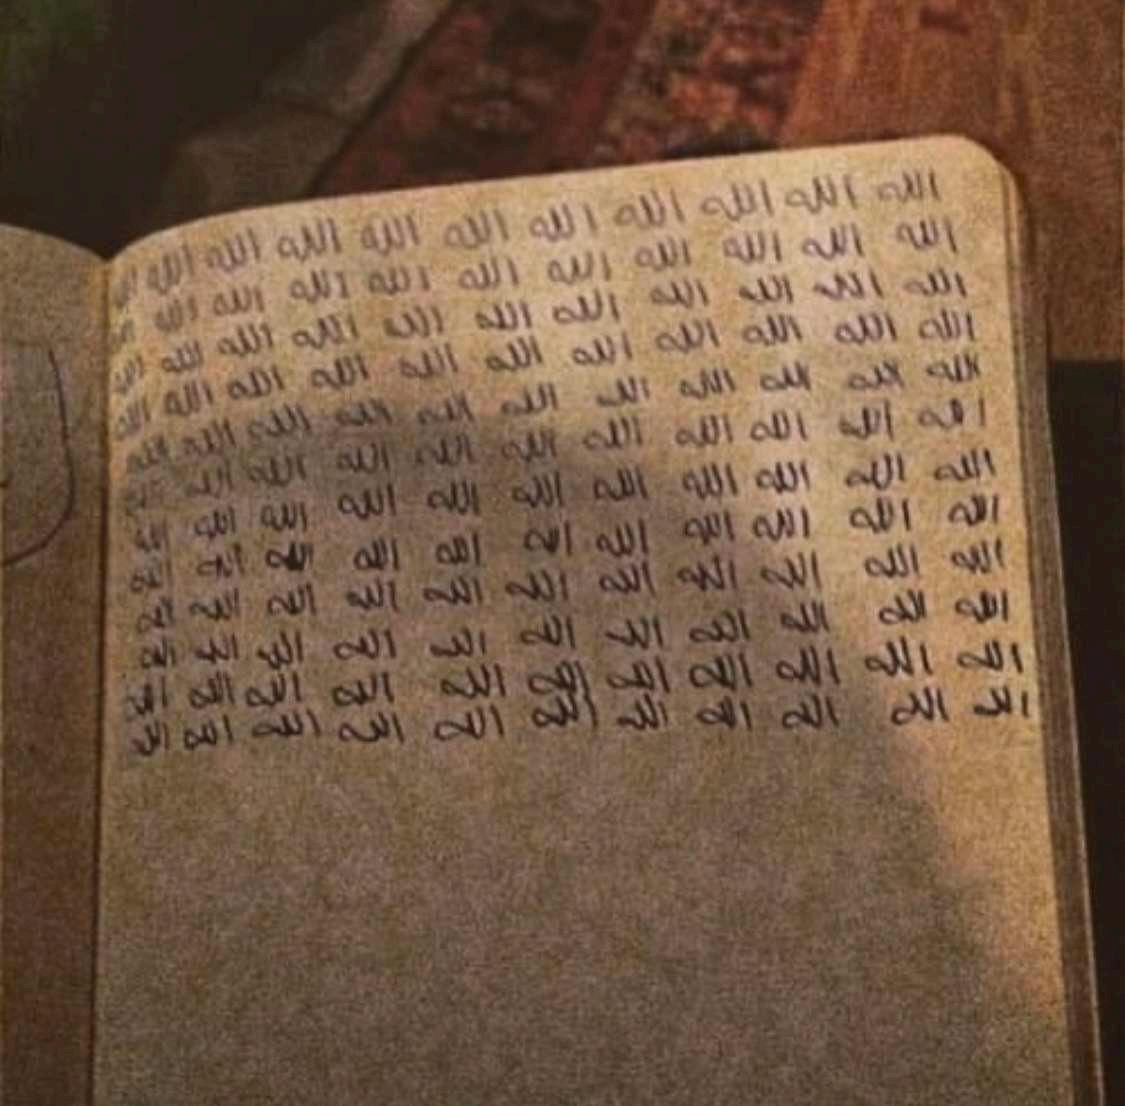 الله الله الله الله الله الله الله الله الله الله
الله الله الله الله الله الله الله الله الله الله
الله الله الله الله الله الله الله الله الله الله الله
الله الله الله الله الله الله الله الله الله الله الله
الله الله الله الله الله الله الله الله الله الله الله
الله الله الله الله الله الله الله الله الله الله
الله الله الله الله الله الله الله الله الله الله الله
الله الله الله الله الله الله الله الله الله الله الله
الله الله الله الله الله الله الله الله الله الله الله
الله الله الله الله الله الله الله الله الله الله الله
الله الله الله الله الله الله الله الله الله الله الله
الله الله الله الله الله الله الله الله الله الله الله